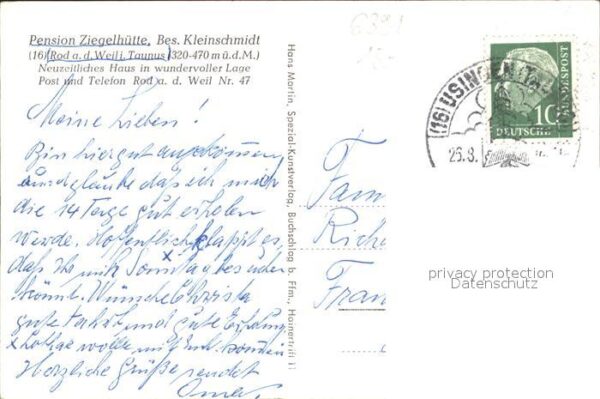 Pension Ziegelhütte, Bes. Kleinschmidt
(16) Rod a. d. Weil i. Taunus (320-470 m ü.d.M.)
Neuzeitliches Haus in wundervoller Lage
Post und Telefon Rod a. d. Weil Nr. 47
Meine Lieben!
Bin hier gut angekommen
und glaube daß ich mich
die 14 Tage gut erholen
werde. Hoffentlich klappt es,
daß ihr mich Sonntag besuchen
könnt. Wünsche Christa
gute Fahrt und gute Erholung
Lothar wolle mit
Herzliche Grüße sendet
Oma
Hans Martin, Spezial-Kunstverlag, Buchschlag b. Ffm., Hainertrift 11
6391
(16) USINGEN (Ts)
26.8.
10
DEUTSCHE
BUNDESPOST
Fam
Riche
Fran
privacy protection
Datenschutz